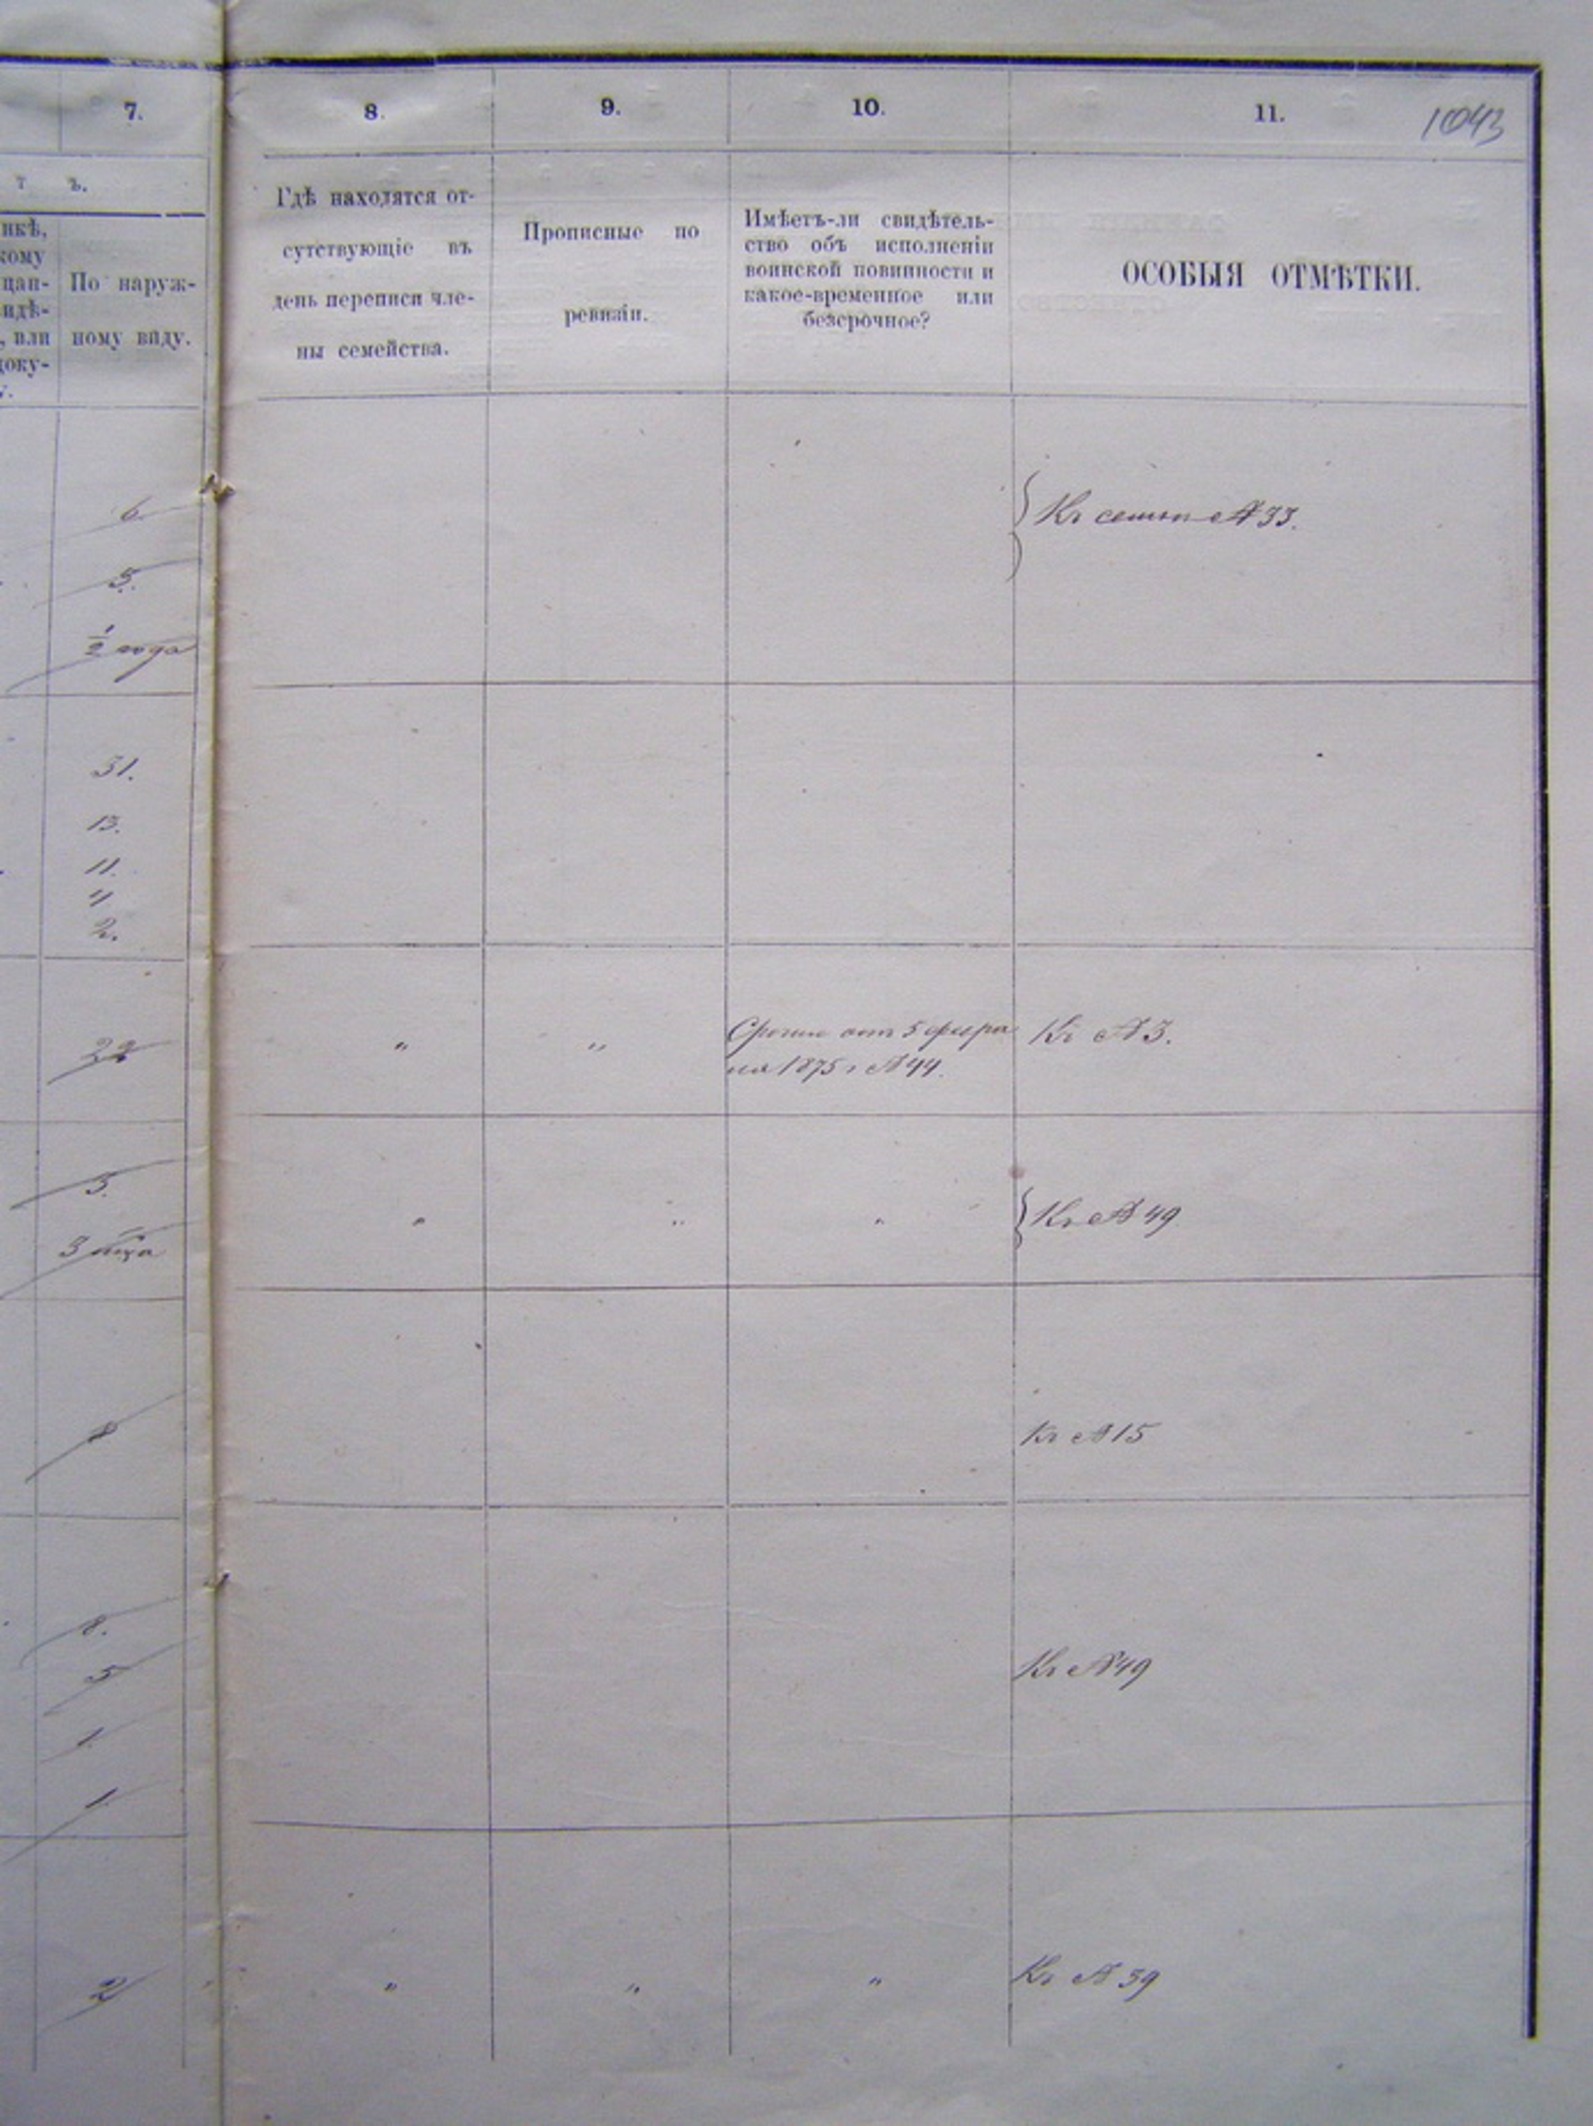 7.
8.
9.
10.
11.
1043
т ъ.
икѣ,
кому
цан-
идѣ-
, или
доку-
у.
По наруж-
ному виду.
Гдѣ находятся от-
сутствующіе въ
день переписи чле-
ны семейства.
Прописные по
ревизіи.
Имѣетъ-ли свидѣтель-
ство объ исполненіи
воинской повинности и
какое-временное или
безсрочное?
ОСОБЫЯ ОТМѢТКИ.
6
5.
½ года
Къ семьи № 33.
31.
13.
11.
4
2.
22
"
"
от 5 февра
ля 1875 г № 44.
Къ № 3.
3.
3 м-ца
"
"
"
Къ № 49
8
Къ № 15
8.
5
1
1
Къ № 49
2
"
"
"
Къ № 39